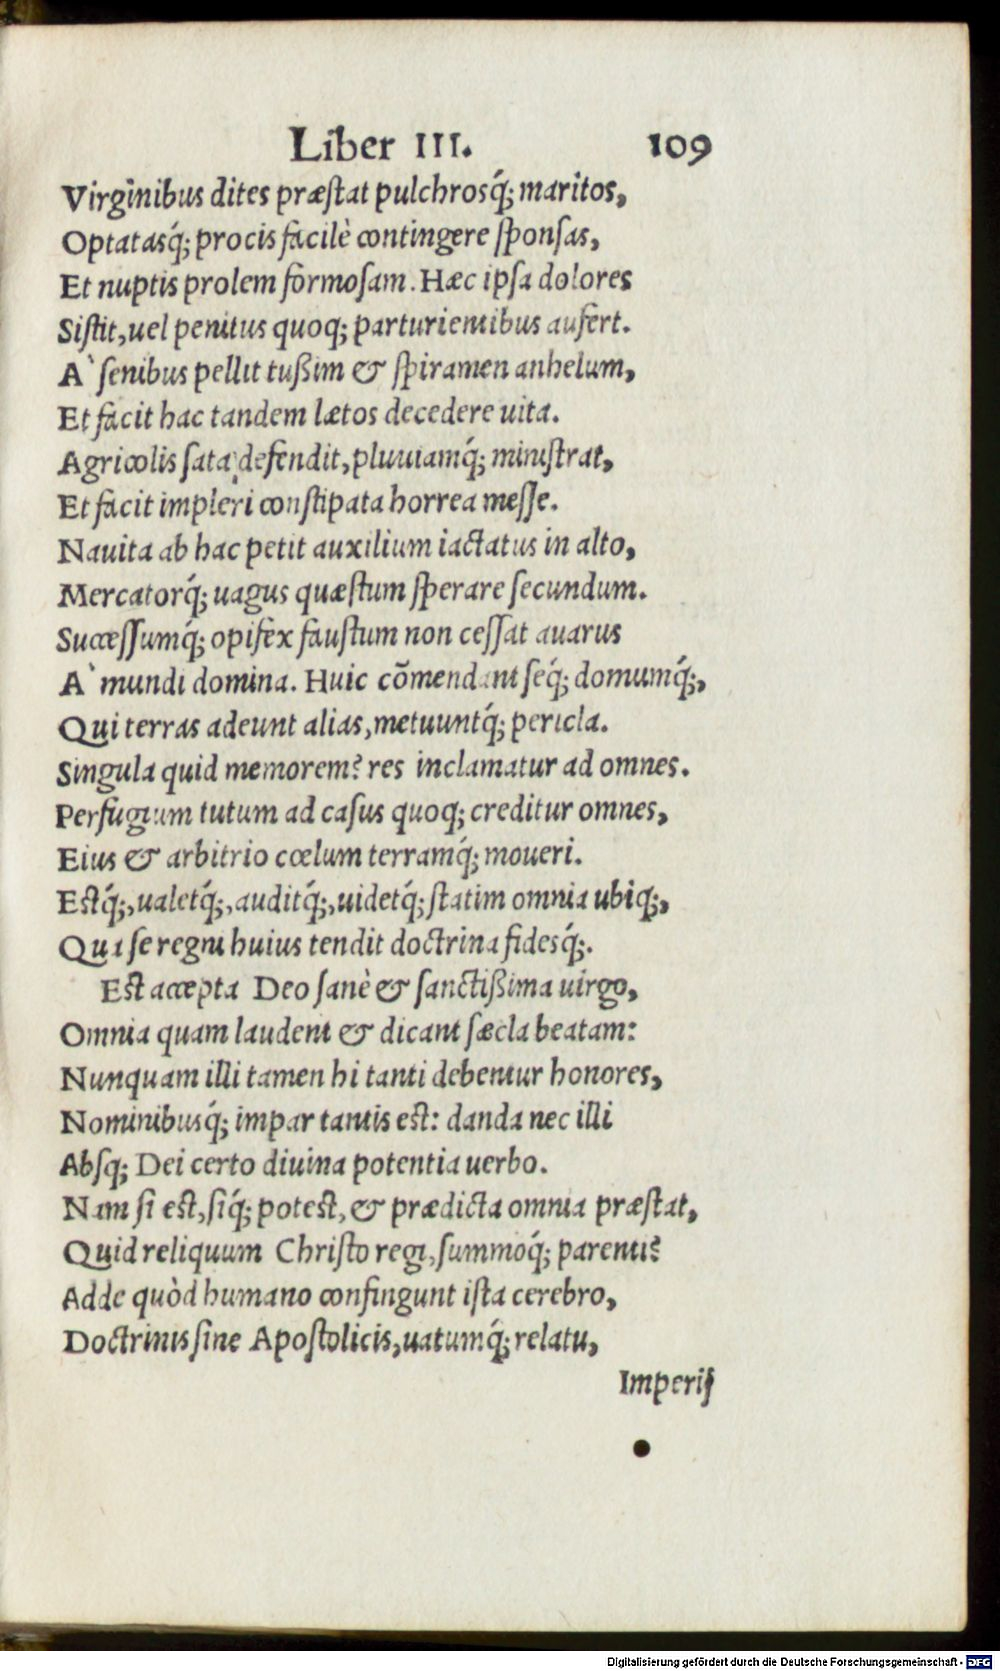 Liber III. 109
Virginibus dites præſtat pulchrosq́; maritos,
Optatasq́; procis facilè contingere ſponſas,
Et nuptis prolem formoſam. Hæc ipſa dolores
Siſtit, uel penitus quoq; parturientibus aufert.
A` ſenibus pellit tußim & ſpiramen anhelum,
Et facit hac tandem lætos decedere uita.
Agricolis ſata defendit, pluuiamq́; miniſtrat,
Et facit impleri conſtipata horrea meſſe.
Nauita ab hac petit auxilium iactatus in alto,
Mercatorq́; uagus quæſtum ſperare ſecundum.
Succeſſumq́; opifex fauſtum non ceſſat auarus
A` mundi domina. Huic cōmendant ſeq́; domumq́;,
Qui terras adeunt alias, metuuntq́; pericla.
Singula quid memorem? res inclamatur ad omnes.
Perfugium tutum ad caſus quoq; creditur omnes,
Eius & arbitrio cœlum terramq́; moueri.
Estq́;, ualetq́;, auditq́;, uidetq́; ſtatim omnia ubiq;,
Qua ſe regni huius tendit doctrina fidesq́;.
Est accepta Deo ſanè & ſanctißima uirgo,
Omnia quam laudent & dicant ſæcla beatam:
Nunquam illi tamen hi tanti debentur honores,
Nominibusq́; impar tantis est: danda nec illi
Absq; Dei certo diuina potentia uerbo.
Nam ſi est, ſiq́; potest, & prædicta omnia præſtat,
Quid reliquum Chriſto regi, ſummoq́; parenti?
Adde quòd humano confingunt iſta cerebro,
Doctrinis ſine Apoſtolicis, uatumq́; relatu,
Imperij
Digitalisierung gefördert durch die Deutsche Forschungsgemeinschaft - DFG